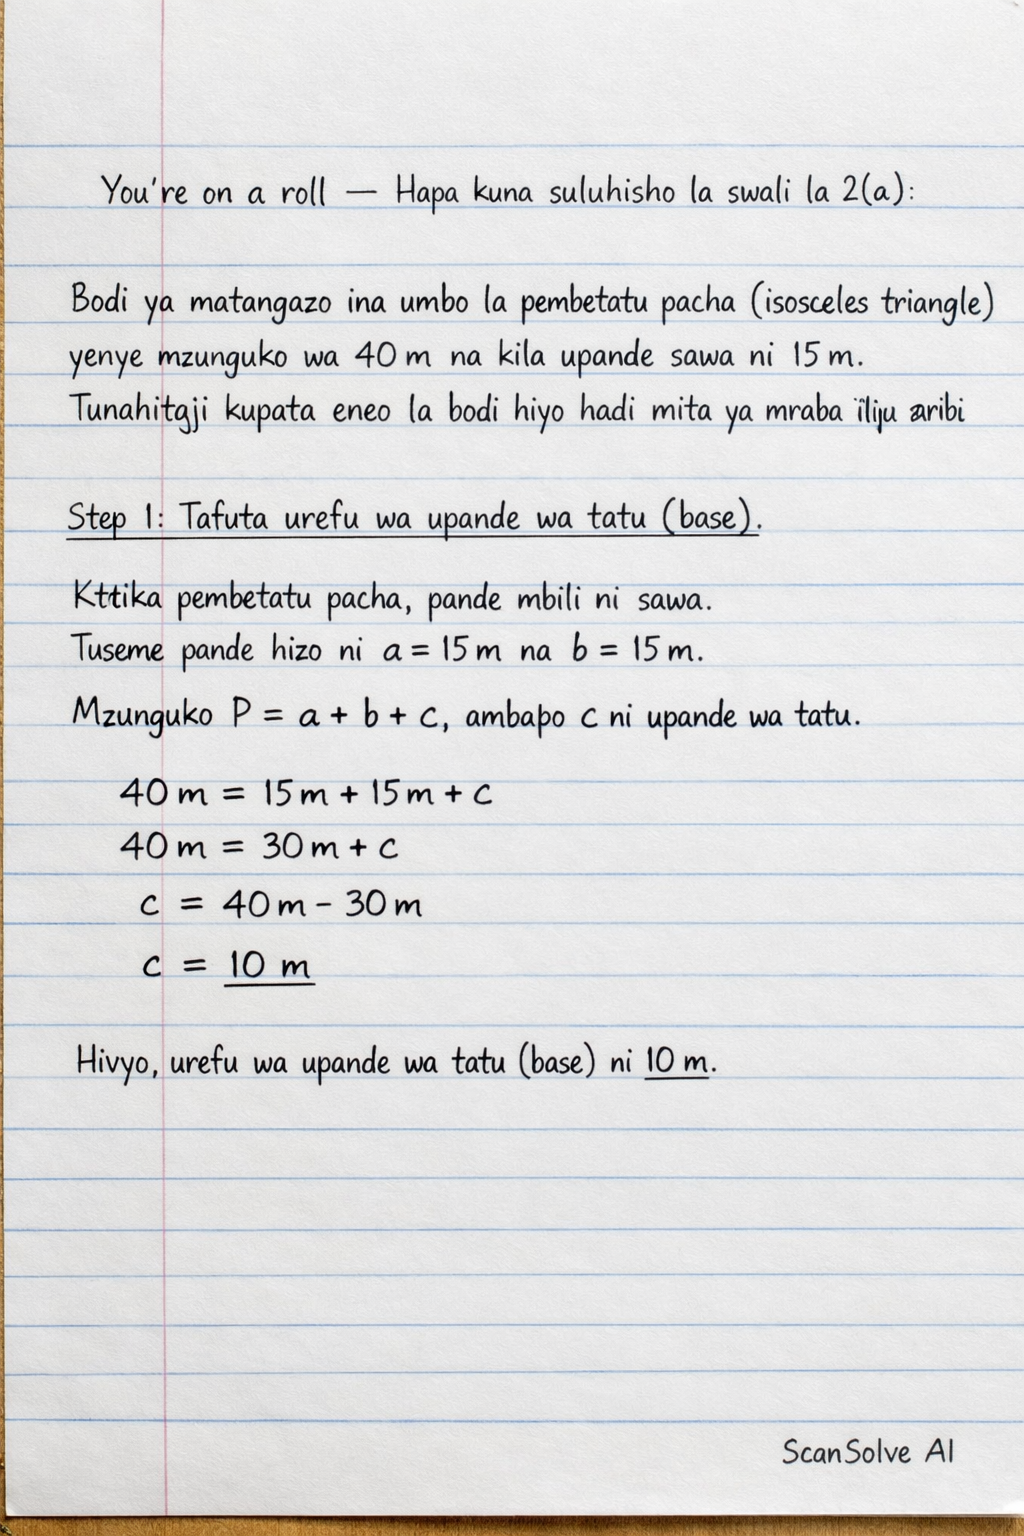 You're on a roll — Hapa kuna suluhisho la swali la 2(a):
Bodi ya matangazo ina umbo la pembetatu pacha (isosceles triangle)
yenye mzunguko wa 40 m na kila upande sawa ni 15 m.
Tunahitaji kupata eneo la bodi hiyo hadi mita ya mraba
Step 1: Tafuta urefu wa upande wa tatu (base).
Kttika pembetatu pacha, pande mbili ni sawa.
Tuseme pande hizo ni a = 15 m na b = 15 m.
Mzunguko P = a + b + c, ambapo c ni upande wa tatu.
40 m = 15 m + 15 m + c
40 m = 30 m + c
c = 40 m - 30 m
c = 10 m
Hivyo, urefu wa upande wa tatu (base) ni 10 m.
ScanSolve AI